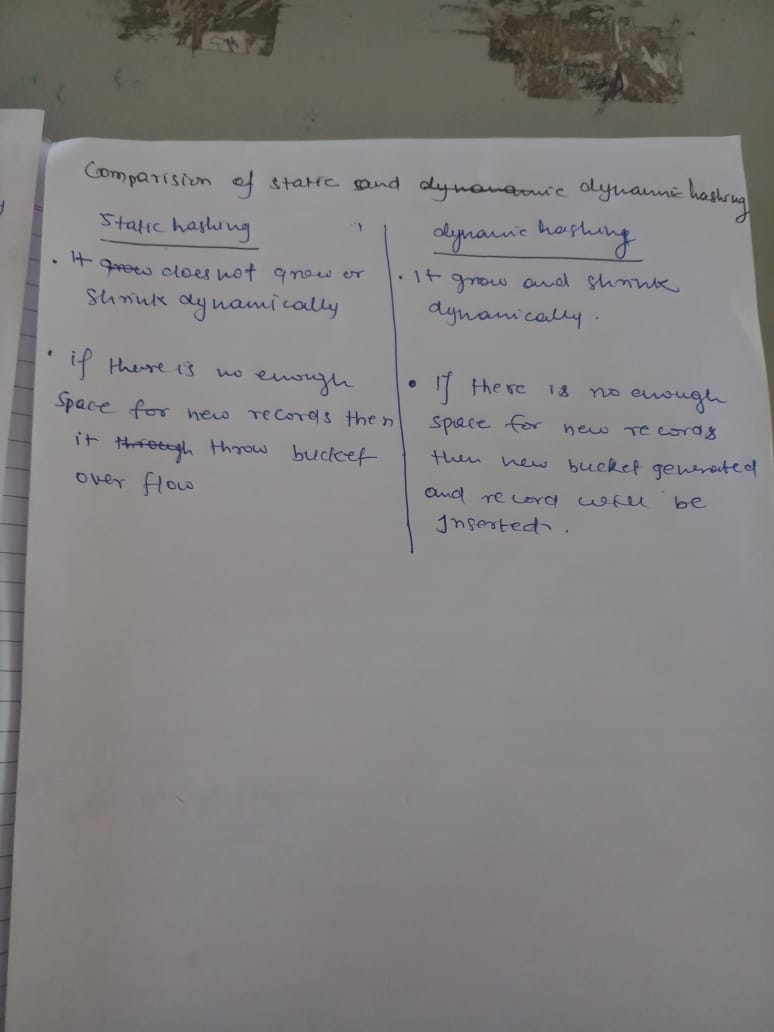 Comparision of static and dynamic dynamic hashing
Static hashing
. It grow does not grow or
shrink dynamically
. if there is no enough
Space for new records then
it through throw bucket
over flow
dynamic hashing
. It grow and shrink
dynamically.
• If there is no enough
space for new records
then new bucket generated
and record will be
Inserted.